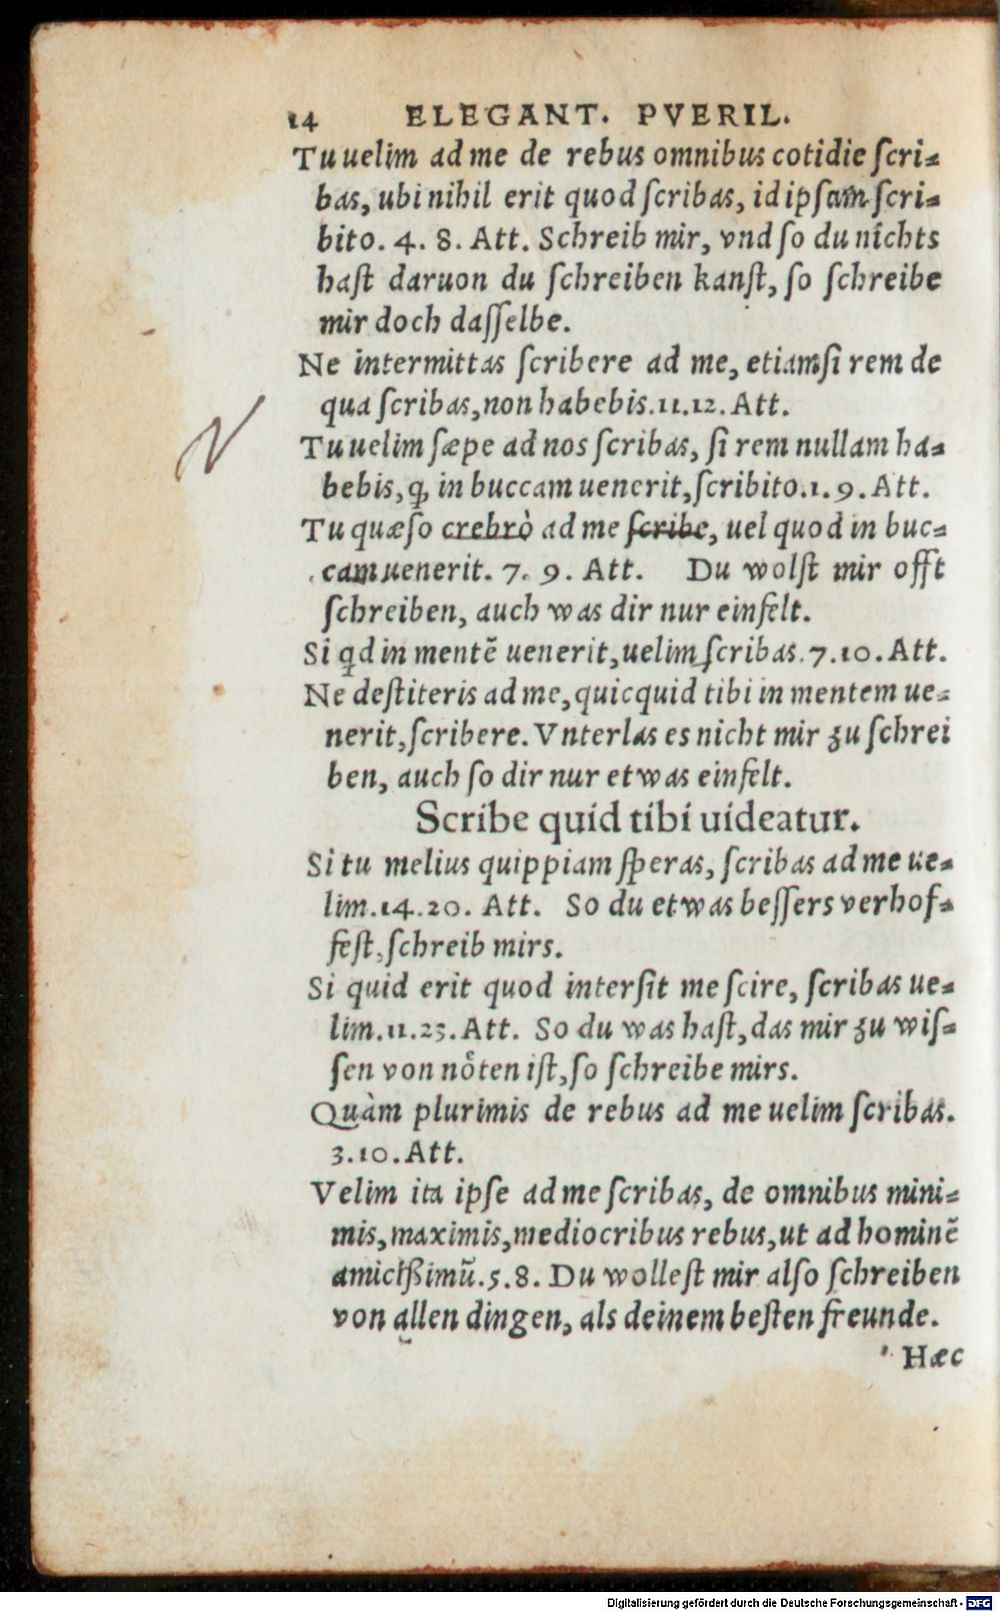 14 ELEGANT. PVERIL.
Tu uelim ad me de rebus omnibus cotidie ſcri-
bas, ubi nihil erit quod ſcribas, id ipſam ſcri-
bito. 4. 8. Att. Schreib mir, vnd ſo du nichts
haſt daruon du ſchreiben kanſt, ſo ſchreibe
mir doch daſſelbe.
Ne intermittas ſcribere ad me, etiamſi rem de
qua ſcribas, non habebis. 11. 12. Att.
N
Tu uelim ſæpe ad nos ſcribas, ſi rem nullam ha-
bebis, ꝙ in buccam uenerit, ſcribito. 1. 9. Att.
Tu quæſo crebrò ad me ſcribe, uel quod in buc-
cam uenerit. 7. 9. Att. Du wolſt mir offt
ſchreiben, auch was dir nur einfelt.
Si qd in mentẽ uenerit, uelim ſcribas. 7. 10. Att.
Ne deſtiteris ad me, quicquid tibi in mentem ue-
nerit, ſcribere. Vnterlas es nicht mir zu ſchrei
ben, auch ſo dir nur etwas einfelt.
Scribe quid tibi uideatur.
Si tu melius quippiam ſperas, ſcribas ad me ue-
lim. 14. 20. Att. So du etwas beſſers verhof-
feſt, ſchreib mirs.
Si quid erit quod interſit me ſcire, ſcribas ue-
lim. 11. 23. Att. So du was haſt, das mir zu wiſ-
ſen von noͤten iſt, ſo ſchreibe mirs.
Quàm plurimis de rebus ad me uelim ſcribas.
3. 10. Att.
Velim ita ipſe ad me ſcribas, de omnibus mini-
mis, maximis, mediocribus rebus, ut ad hominẽ
amiciſsimũ. 5. 8. Du wolleſt mir alſo ſchreiben
von allen dingen, als deinem beſten freunde.
Hæc
Digitalisierung gefördert durch die Deutsche Forschungsgemeinschaft - DFG